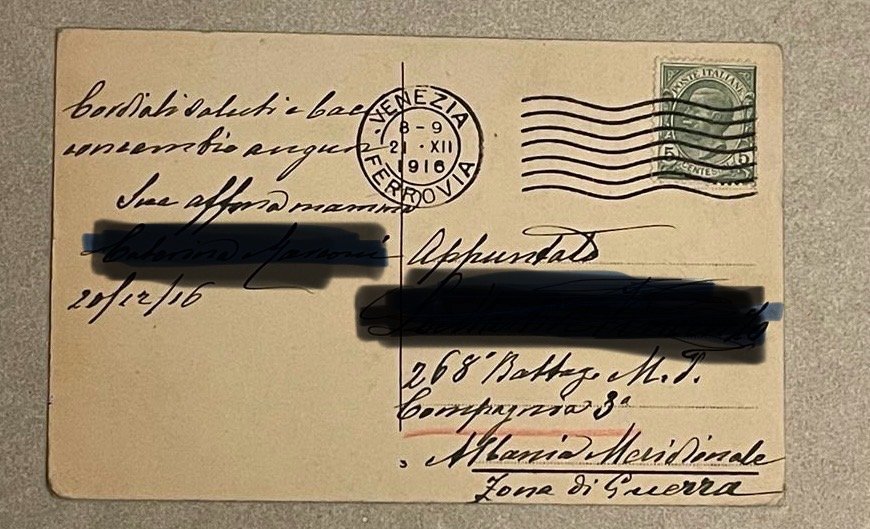 Cordiali saluti e bac
concambio auguri
Sua affma mamma
20/12/16
VENEZIA
8-9
21 · XII
1916
FERROVIA
POSTE ITALIANE
5 5
CENTES
Appuntato
268° Battage M. T.
Compagnia 3ª
Albania Meridionale
Zona di Guerra